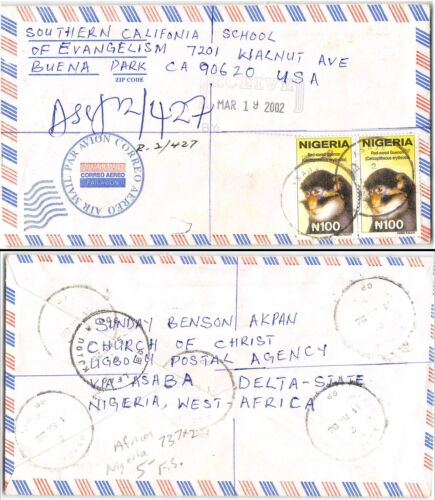 SOUTHERN CALIFONIA SCHOOL
OF EVANGELISM 7201 WALNUT AVE
BUENA PARK CA 90620 USA
ZIP CODE
RECEIVED
MAR 19 2002
BY:
R-2/427
AIR MAIL PAR AVION CORREO AEREO
CORREO AEREO
PAR AVION
NIGERIA
Red-eared Guenon
(Cercopithecus erythrotis)
N100
NIGERIA
Red-eared Guenon
(Cercopithecus erythrotis)
N100
SUNDAY BENSON AKPAN
CHURCH OF CHRIST
UGBOLU POSTAL AGENCY
VPA ASABA DELTA-STATE
NIGERIA, WEST-AFRICA
African 737x2
Nigeria
5- F.S.